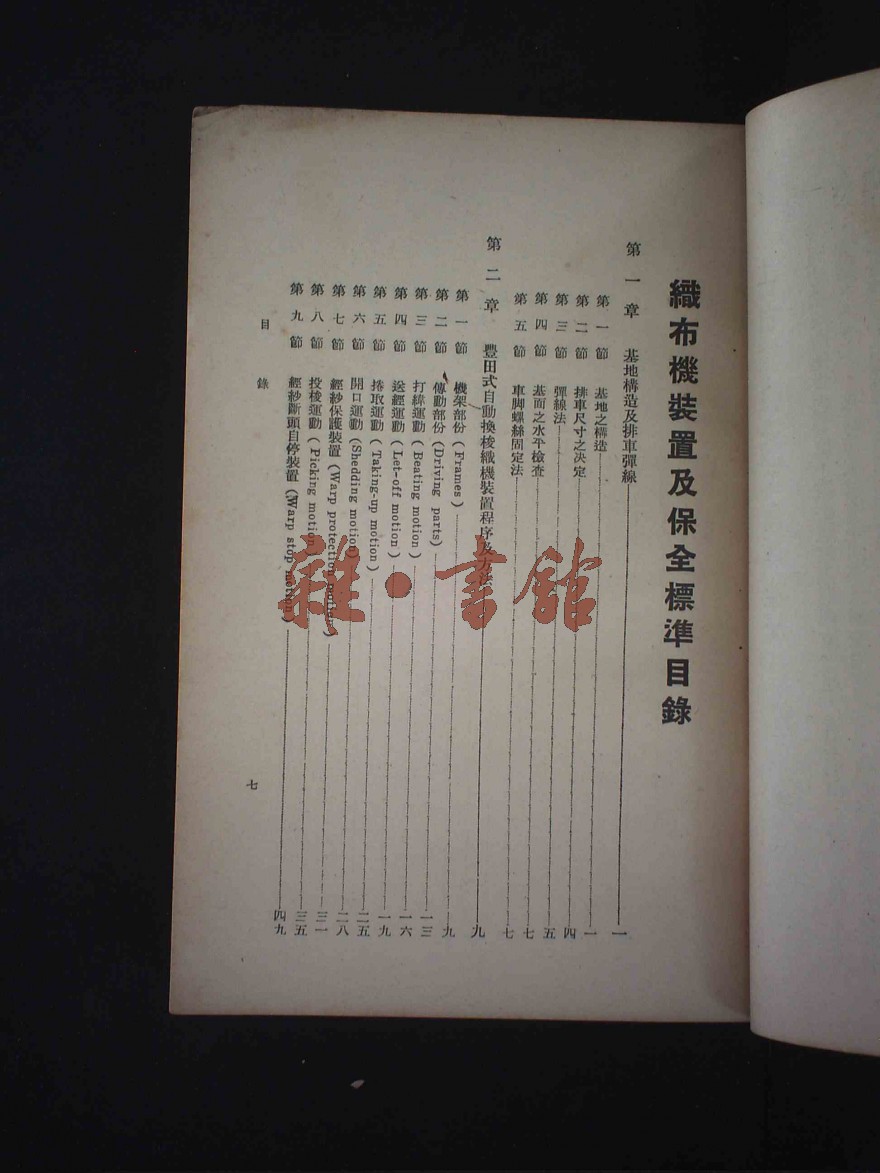 織布機裝置及保全標準目錄
第一章 基地構造及排車彈線 一
第一節 基地之構造 一
第二節 排車尺寸之決定 四
第三節 彈線法 五
第四節 基面之水平檢查 七
第五節 車脚螺絲固定法 七
第二章 豐田式自動換梭織機裝置程序及方法 九
第一節 機架部份(Frames) 九
第二節 傳動部份(Driving parts) 一三
第三節 打緯運動(Beating motion) 一六
第四節 送經運動(Let-off motion) 一九
第五節 捲取運動(Taking-up motion) 二五
第六節 開口運動(Shedding motion) 二八
第七節 經紗保護裝置(Warp protection motion) 三一
第八節 投梭運動(Picking motion) 三五
第九節 經紗斷頭自停裝置(Warp stop motion) 四九
目錄
七
雜·書館